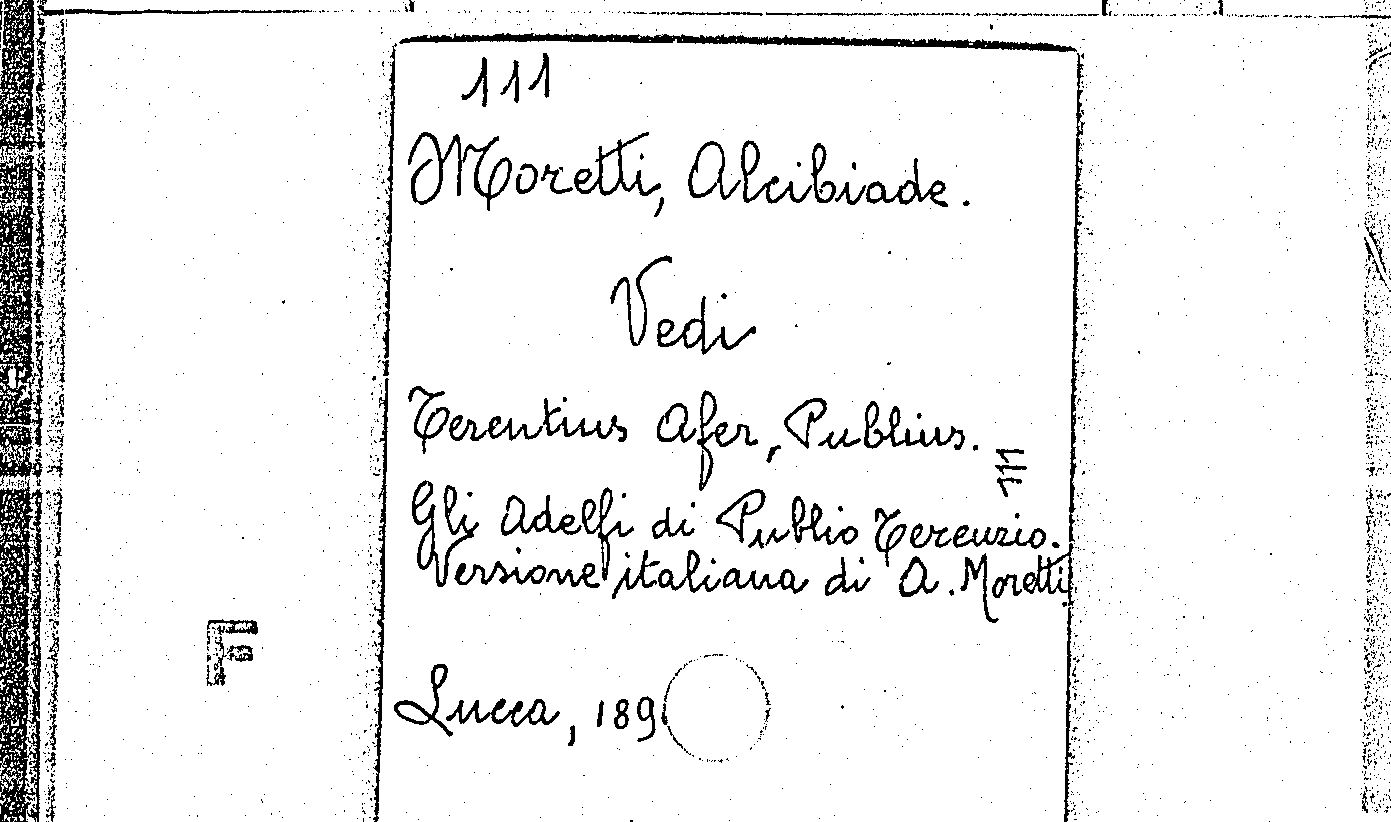 111
Moretti, Alcibiade.
Vedi
Terentius Afer, Publius.
111
Gli Adelfi di Publio Terenzio.
Versione italiana di A. Moretti
F
Lucca, 189